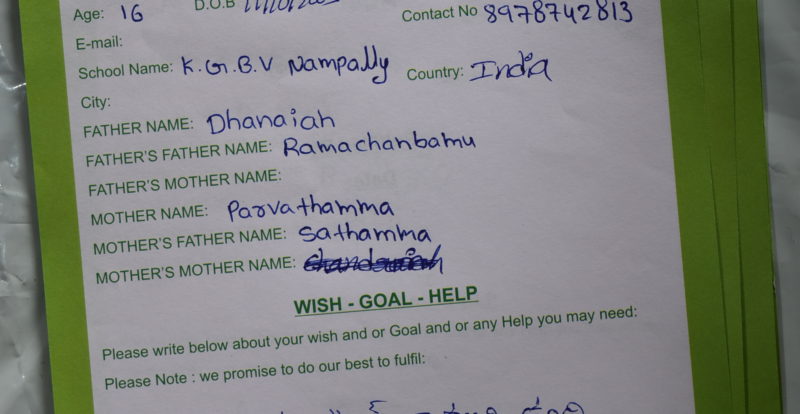 Age: 16 D.O.B Contact No 8978742813
E-mail:
School Name: K.G.B.V Nampally Country: India
City:
FATHER NAME: Dhanaiah
FATHER'S FATHER NAME: Ramachanbamu
FATHER'S MOTHER NAME:
MOTHER NAME: Parvathamma
MOTHER'S FATHER NAME: Sathamma
MOTHER'S MOTHER NAME:
WISH - GOAL - HELP
Please write below about your wish and or Goal and or any Help you may need:
Please Note : we promise to do our best to fulfil: